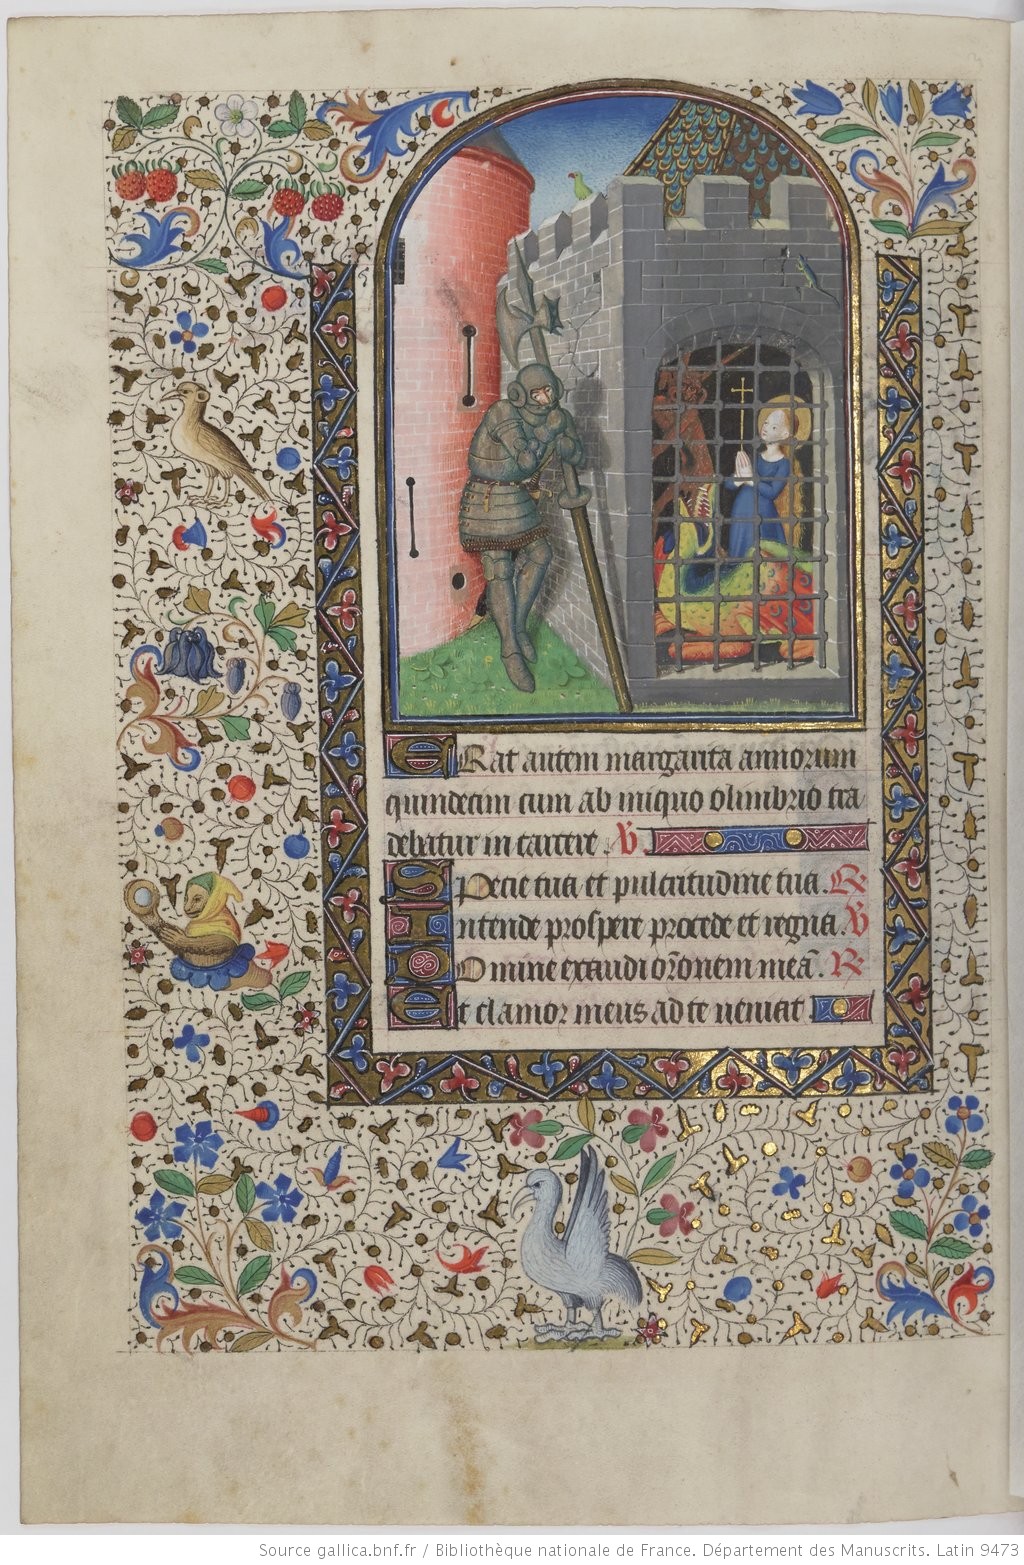 ERat autem margarita annorum
quindecim cum ab iniquo olimbrio tra
debatur in carcere. V.
Specie tua et pulcritudine tua. R.
Intende prospere procede et regna. V
Domine exaudi orōnem meā. R.
Et clamor meus ad te veniat
Source gallica.bnf.fr / Bibliothèque nationale de France. Département des Manuscrits. Latin 9473